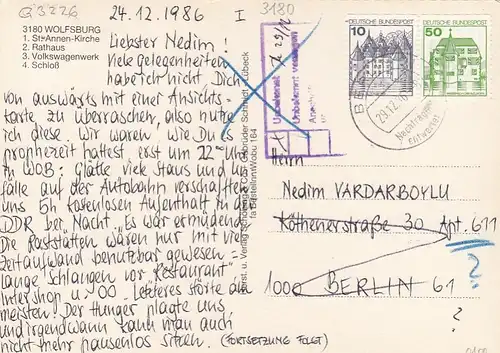 Q3226
24.12.1986
I
3180
3180 WOLFSBURG
1. St-Annen-Kirche
2. Rathaus
3. Volkswagenwerk
4. Schloß
Liebster Nedim!
Viele Gelegenheiten
habe ich nicht, Dich
von auswärts mit einer Ansichts-
karte zu überraschen, also nutze
ich diese. Wir waren, wie Du es
prophezeit hattest, erst um 22 Uhr
in WOB: Glätte viele Staus und Un-
fälle auf der Autobahn verschafften
uns 5h kostenlosen Aufenthalt in der
DDR bei "Nacht". Es war ermüdend.
Die Raststätten waren nur mit viel
Zeitaufwand benutzbar gewesen -
lange Schlangen vor "Restaurant"
Intershop u. OO. Letzteres störte am
meisten. Der Hunger plagte uns,
und irgendwann kann man auch
nicht mehr pausenlos sitzen. (FORTSETZUNG FOLGT)
Verlag Schöning & Co + Gebrüder Schmidt, Lübeck
DEUTSCHE BUNDESPOST
10
DEUTSCHE BUNDESPOST
50
29.12.
Nachträglich
entwertet
Unbekannt
Unbekannt verzogen
Herrn
Nedim VARDARBOYLU
Köthenerstraße 30 Apt. 611
1000 BERLIN 61
?
?